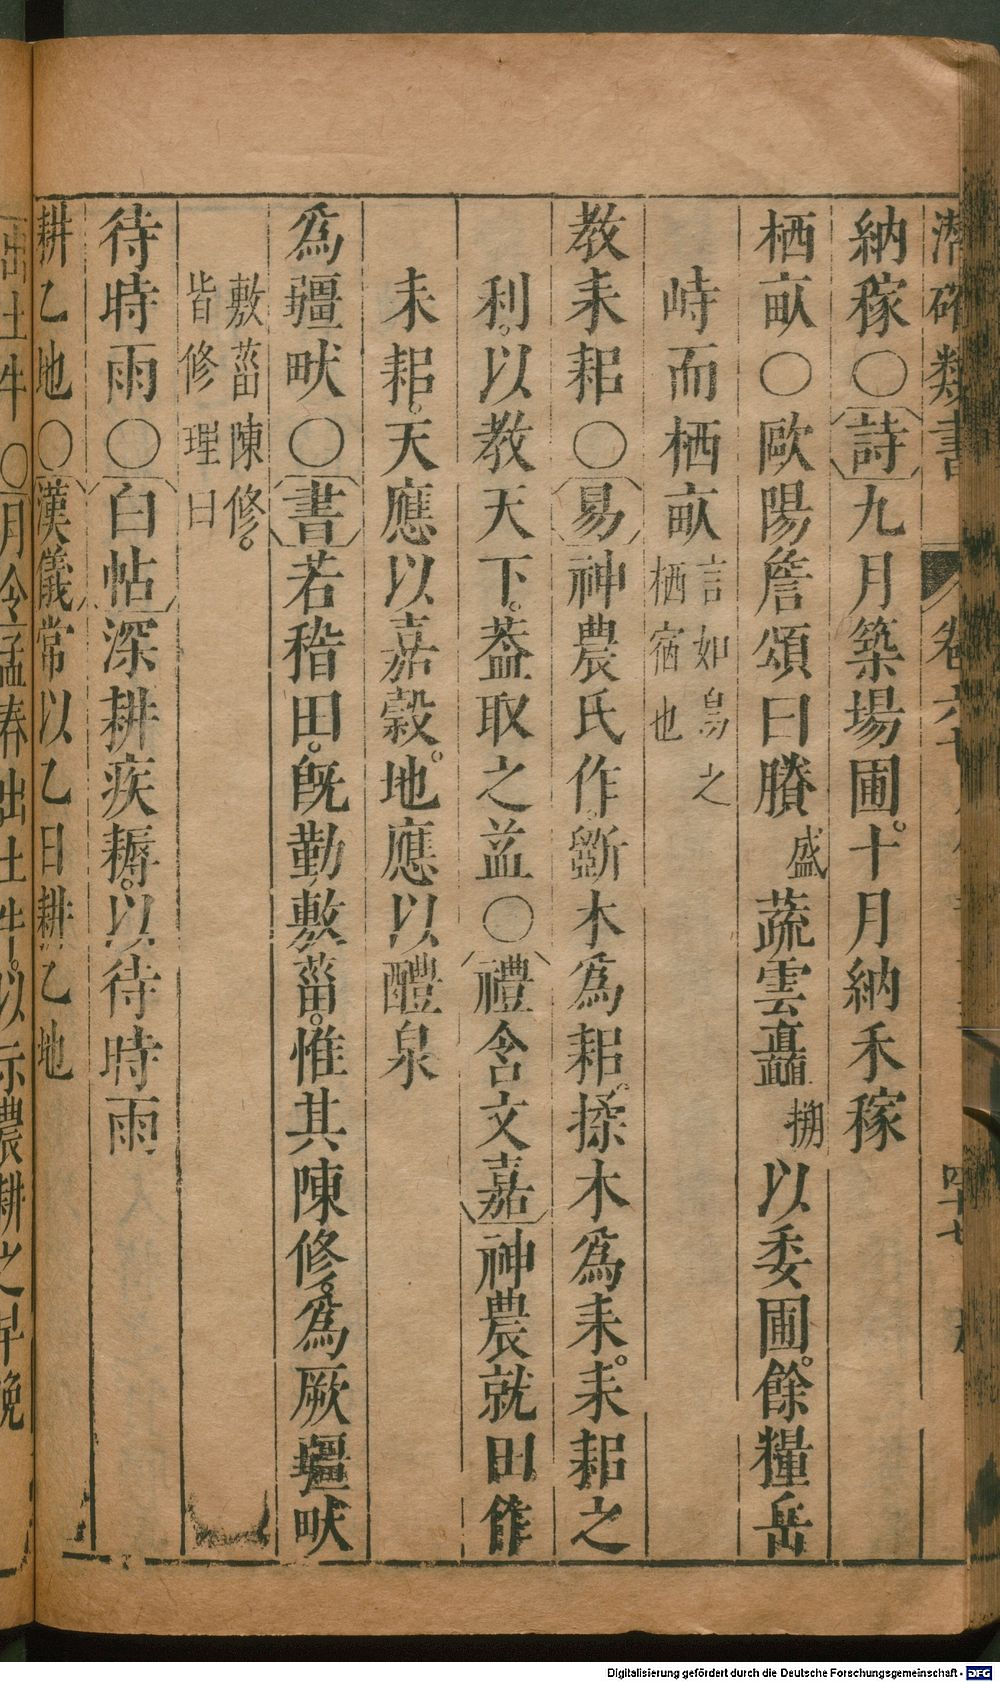 潛確類書 卷六十 四十七
納稼○詩九月築場圃。十月納禾稼
栖畝○歐陽詹頌曰賸盛蔬雲矗搠以委圃。餘糧岳
峙而栖畝言如鳥之栖宿也
教耒耜○易神農氏作。斵木為耜。揉木為耒。耒耜之
利。以教天下。葢取之益○禮含文嘉神農就田作
耒耜。天應以嘉穀。地應以醴泉
為疆畎○書若稽田。旣勤敷菑。惟其陳修。為厥疆畎
敷菑陳修。皆修理曰
待時雨○白帖深耕疾耨。以待時雨
耕乙地○漢儀常以乙日耕乙地
出土牛○月令孟春出土牛。以示農耕之早晚
Digitalisierung gefördert durch die Deutsche Forschungsgemeinschaft - DFG